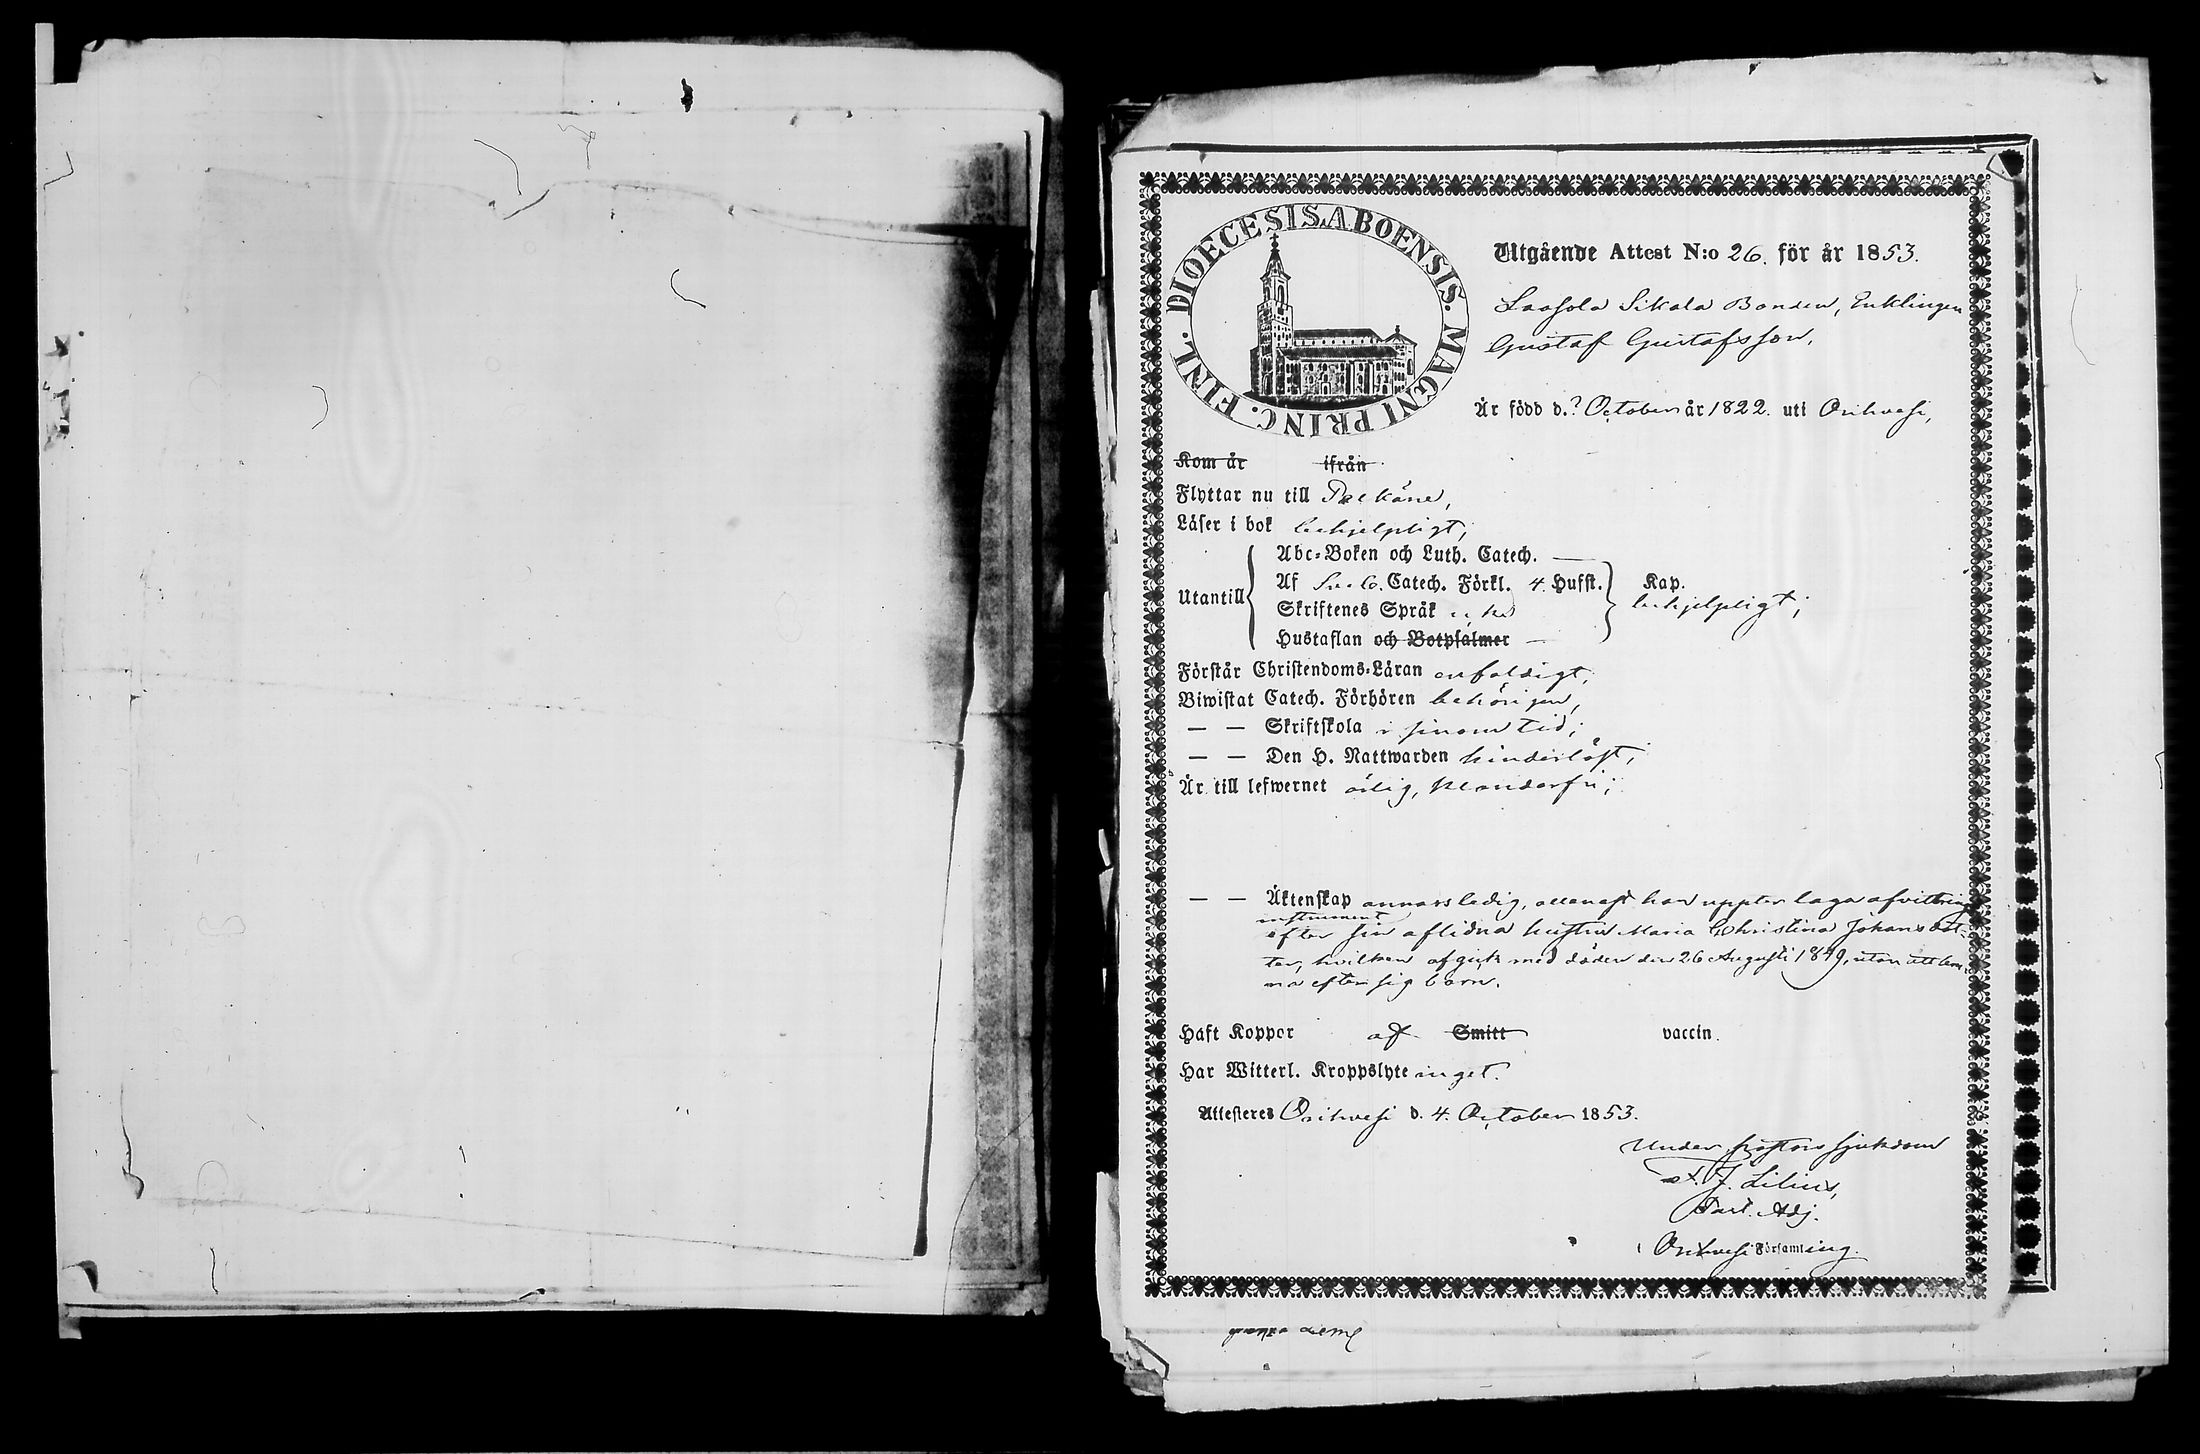 DIOECESIS ABOENSIS. MAGNI PRINC. FINL.
Utgående Attest N:o 26. för år 1853.
Sikala Bonden, Enklingen
Gustaf Gustafsson,
Är född d. ? October år 1822. uti Orihvesi,
Kom år ifrån
Flyttar nu till Pelkäne,
Läser i bok behjelpligt,
Abc-Boken och Luth. Catech. —
Utantill Af Sveb. Catech. Förkl. 4. Hufst. Kap.
Skriftenes Språk behjelpligt;
Hustaflan och Botpsalmer —
Förstår Christendoms-Läran enfaldigt,
Biwistat Catech. Förhören behörigen,
— — Skriftskola i sinom tid;
— — Den H. Nattwarden hinderlöst;
Är till lefwernet ärlig, klanderfri;
— — Äktenskap annars ledig, allenast han uppter laga afvittrings
instrument
efter sin aflidna hustru Maria Christina Johansdot-
ter, hvilken afgick med döden den 26 Augusti 1849, utan att lem-
na efter sig barn.
Haft Koppor af Smitt vaccin.
Har Witterl. Kroppslyte inget.
Attesteras Orihvesi d. 4. October 1853.
Under Pastors sjukdom
F. J. Lilius,
Past. Adj.
i Orihvesi Församling.